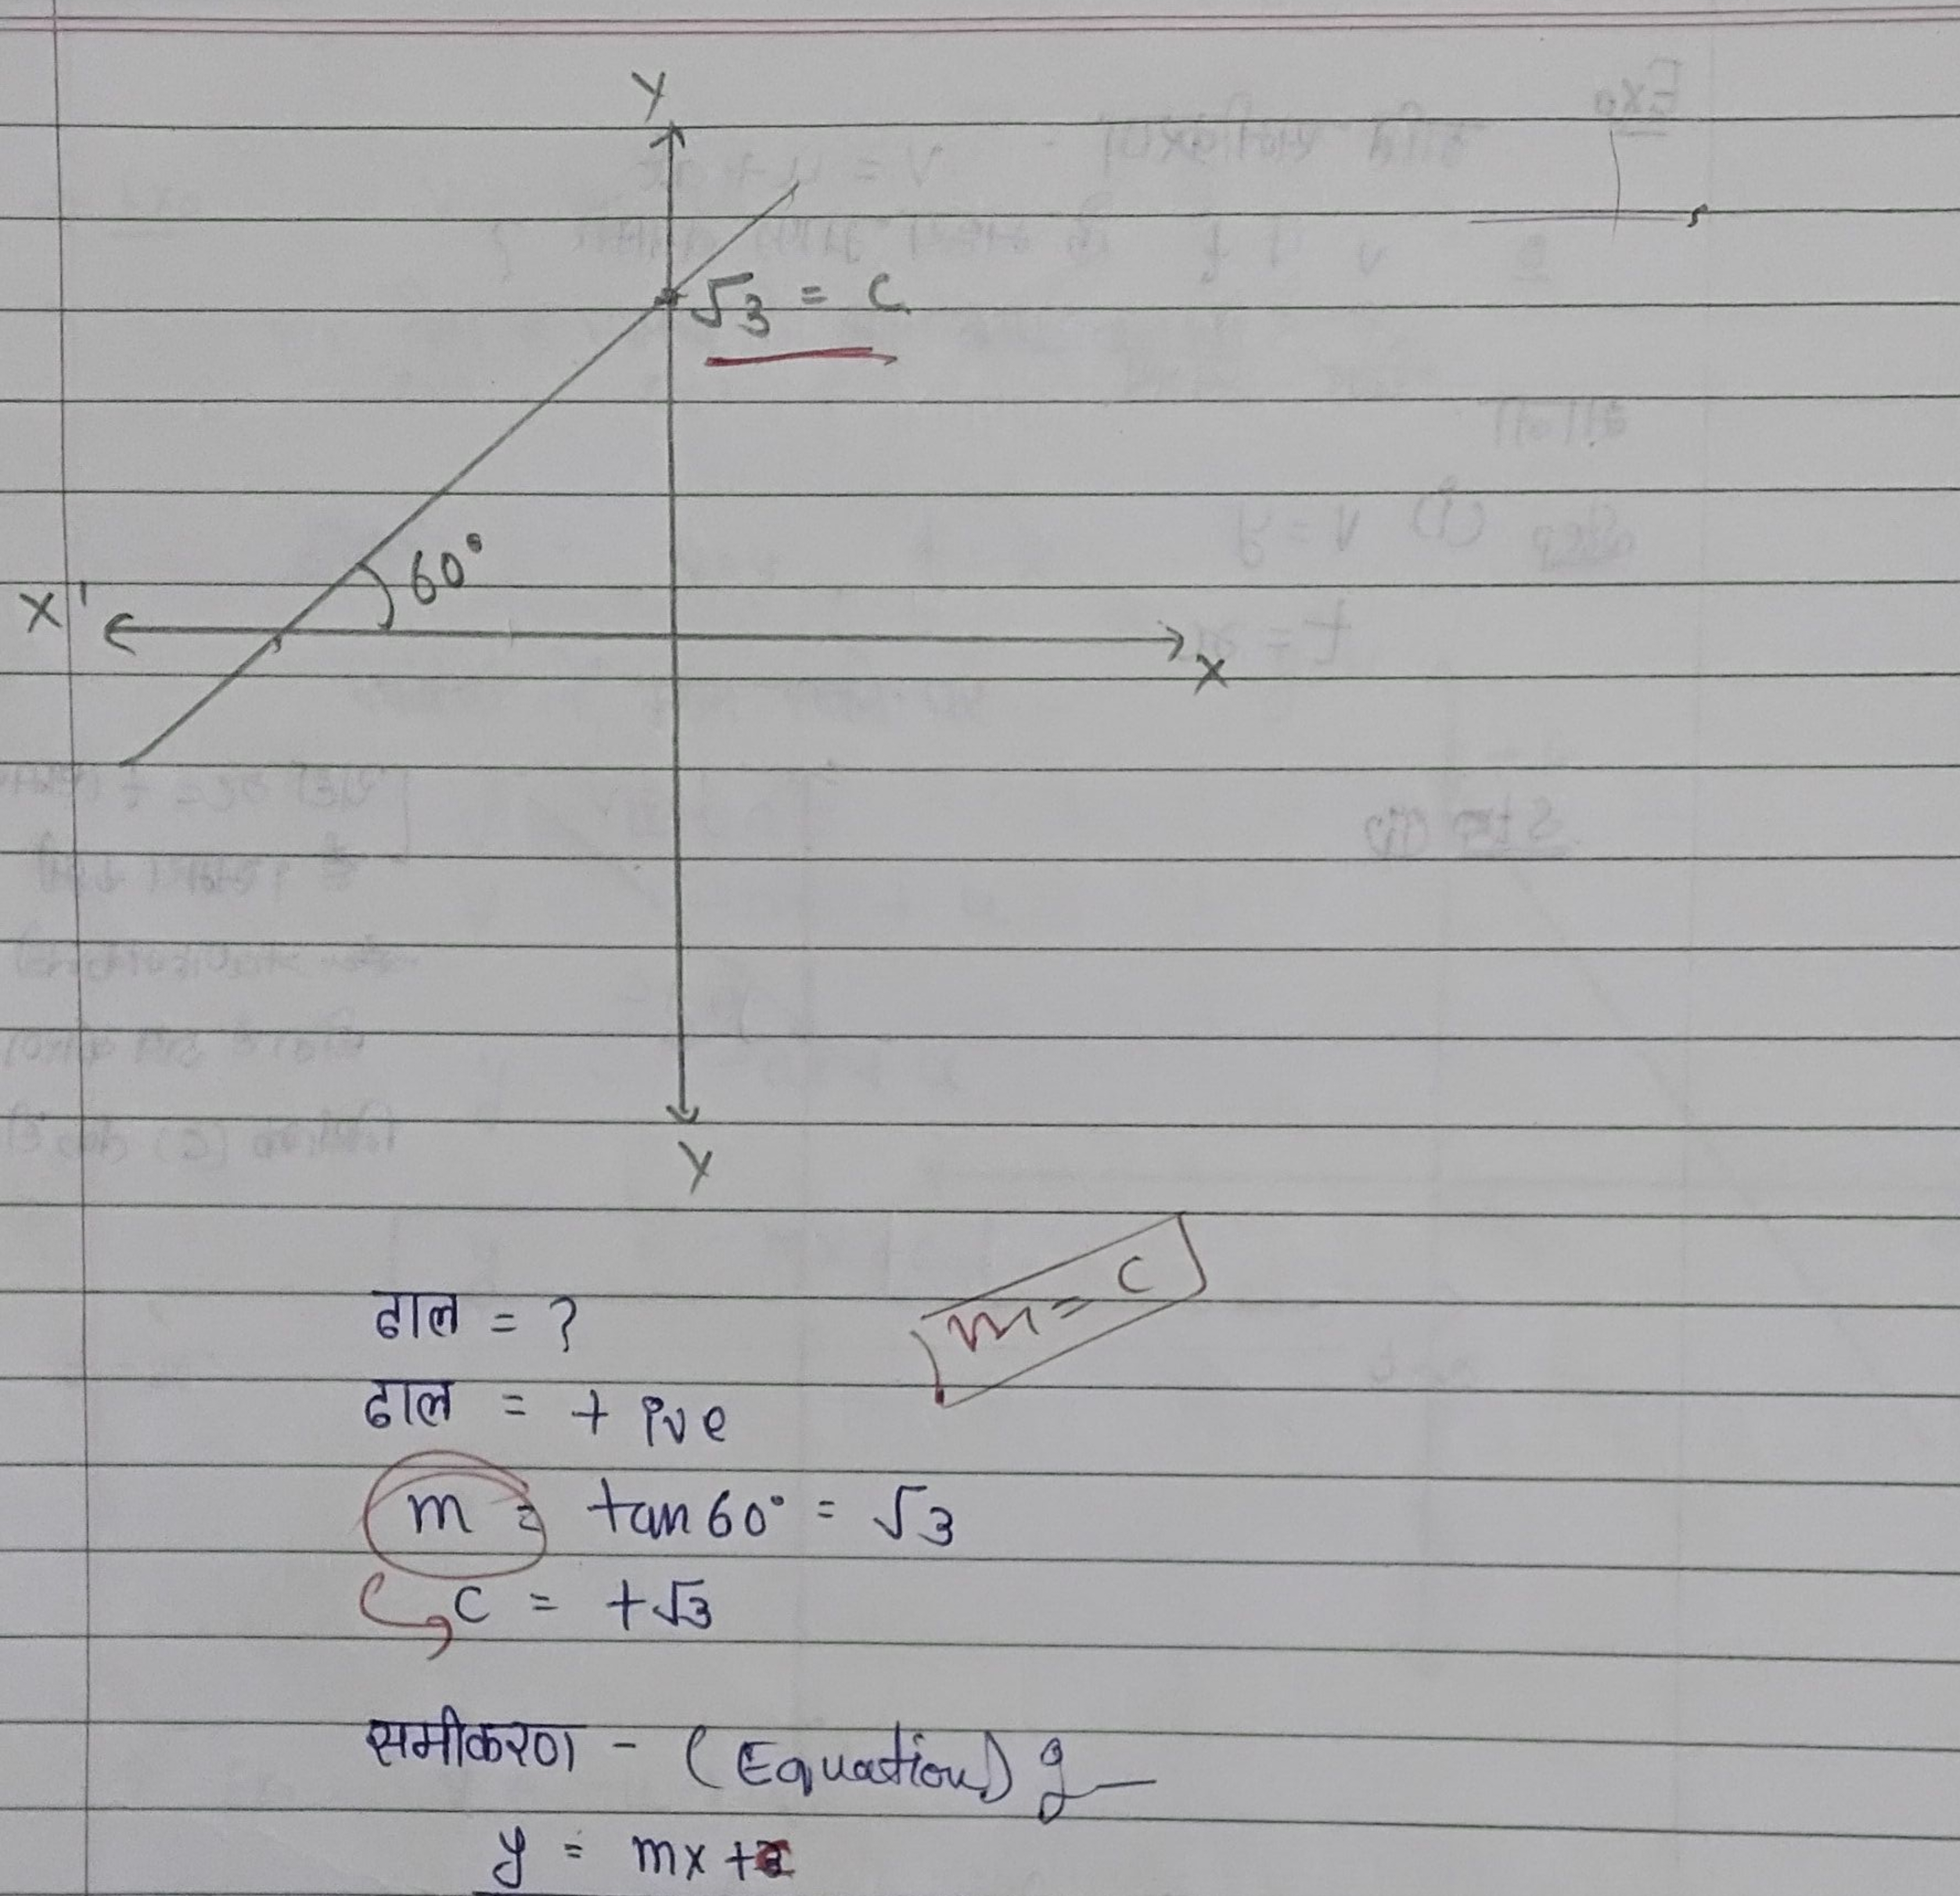 Y
√3 = c
60°
X'
X
Y
m = c
ढाल = ?
ढाल = + ive
m = tan 60° = √3
c = +√3
समीकरण - (Equation)
y = mx + c